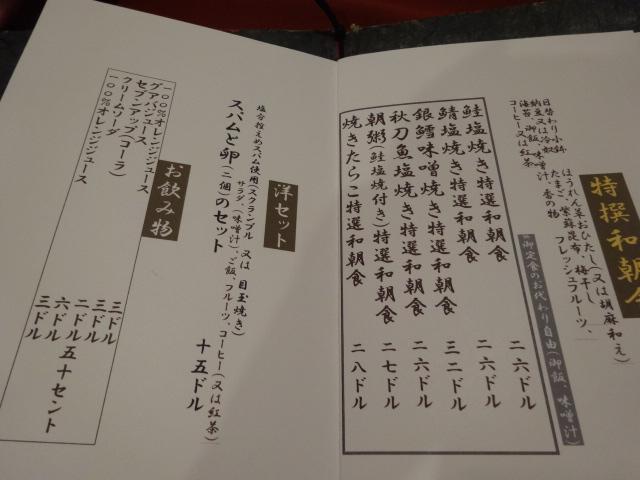 特撰和朝食
ほうれん草おひたし(又は胡麻和え)
たまご、紫蘇昆布、梅干し
フレッシュフルーツ、
日替わり小鉢
納豆又は冷奴
海苔、御飯、味噌汁、香の物
コーヒー又は紅茶
御定食のお代わり自由(御飯、味噌汁)
鮭塩焼き特選和朝食 二六ドル
鯖塩焼き特選和朝食 二六ドル
銀鱈味噌焼き特選和朝食 三二ドル
秋刀魚塩焼き特選和朝食 二六ドル
朝粥(鮭塩焼付き)特選和朝食 二七ドル
焼きたらこ特選和朝食 二八ドル
洋セット
塩分控えめスパム使用(スクランブル 又は 目玉焼き)
サラダ、(味噌汁)、ご飯、フルーツ、コーヒー(又は紅茶)
スパムと卵(二個)のセット 十五ドル
お飲み物
一〇〇%オレンジジュース 三ドル
グアバジュース 三ドル
セブンアップ(コーラ) 二ドル五十セント
クリームソーダ 六ドル
一〇〇%オレンジジュース 三ドル